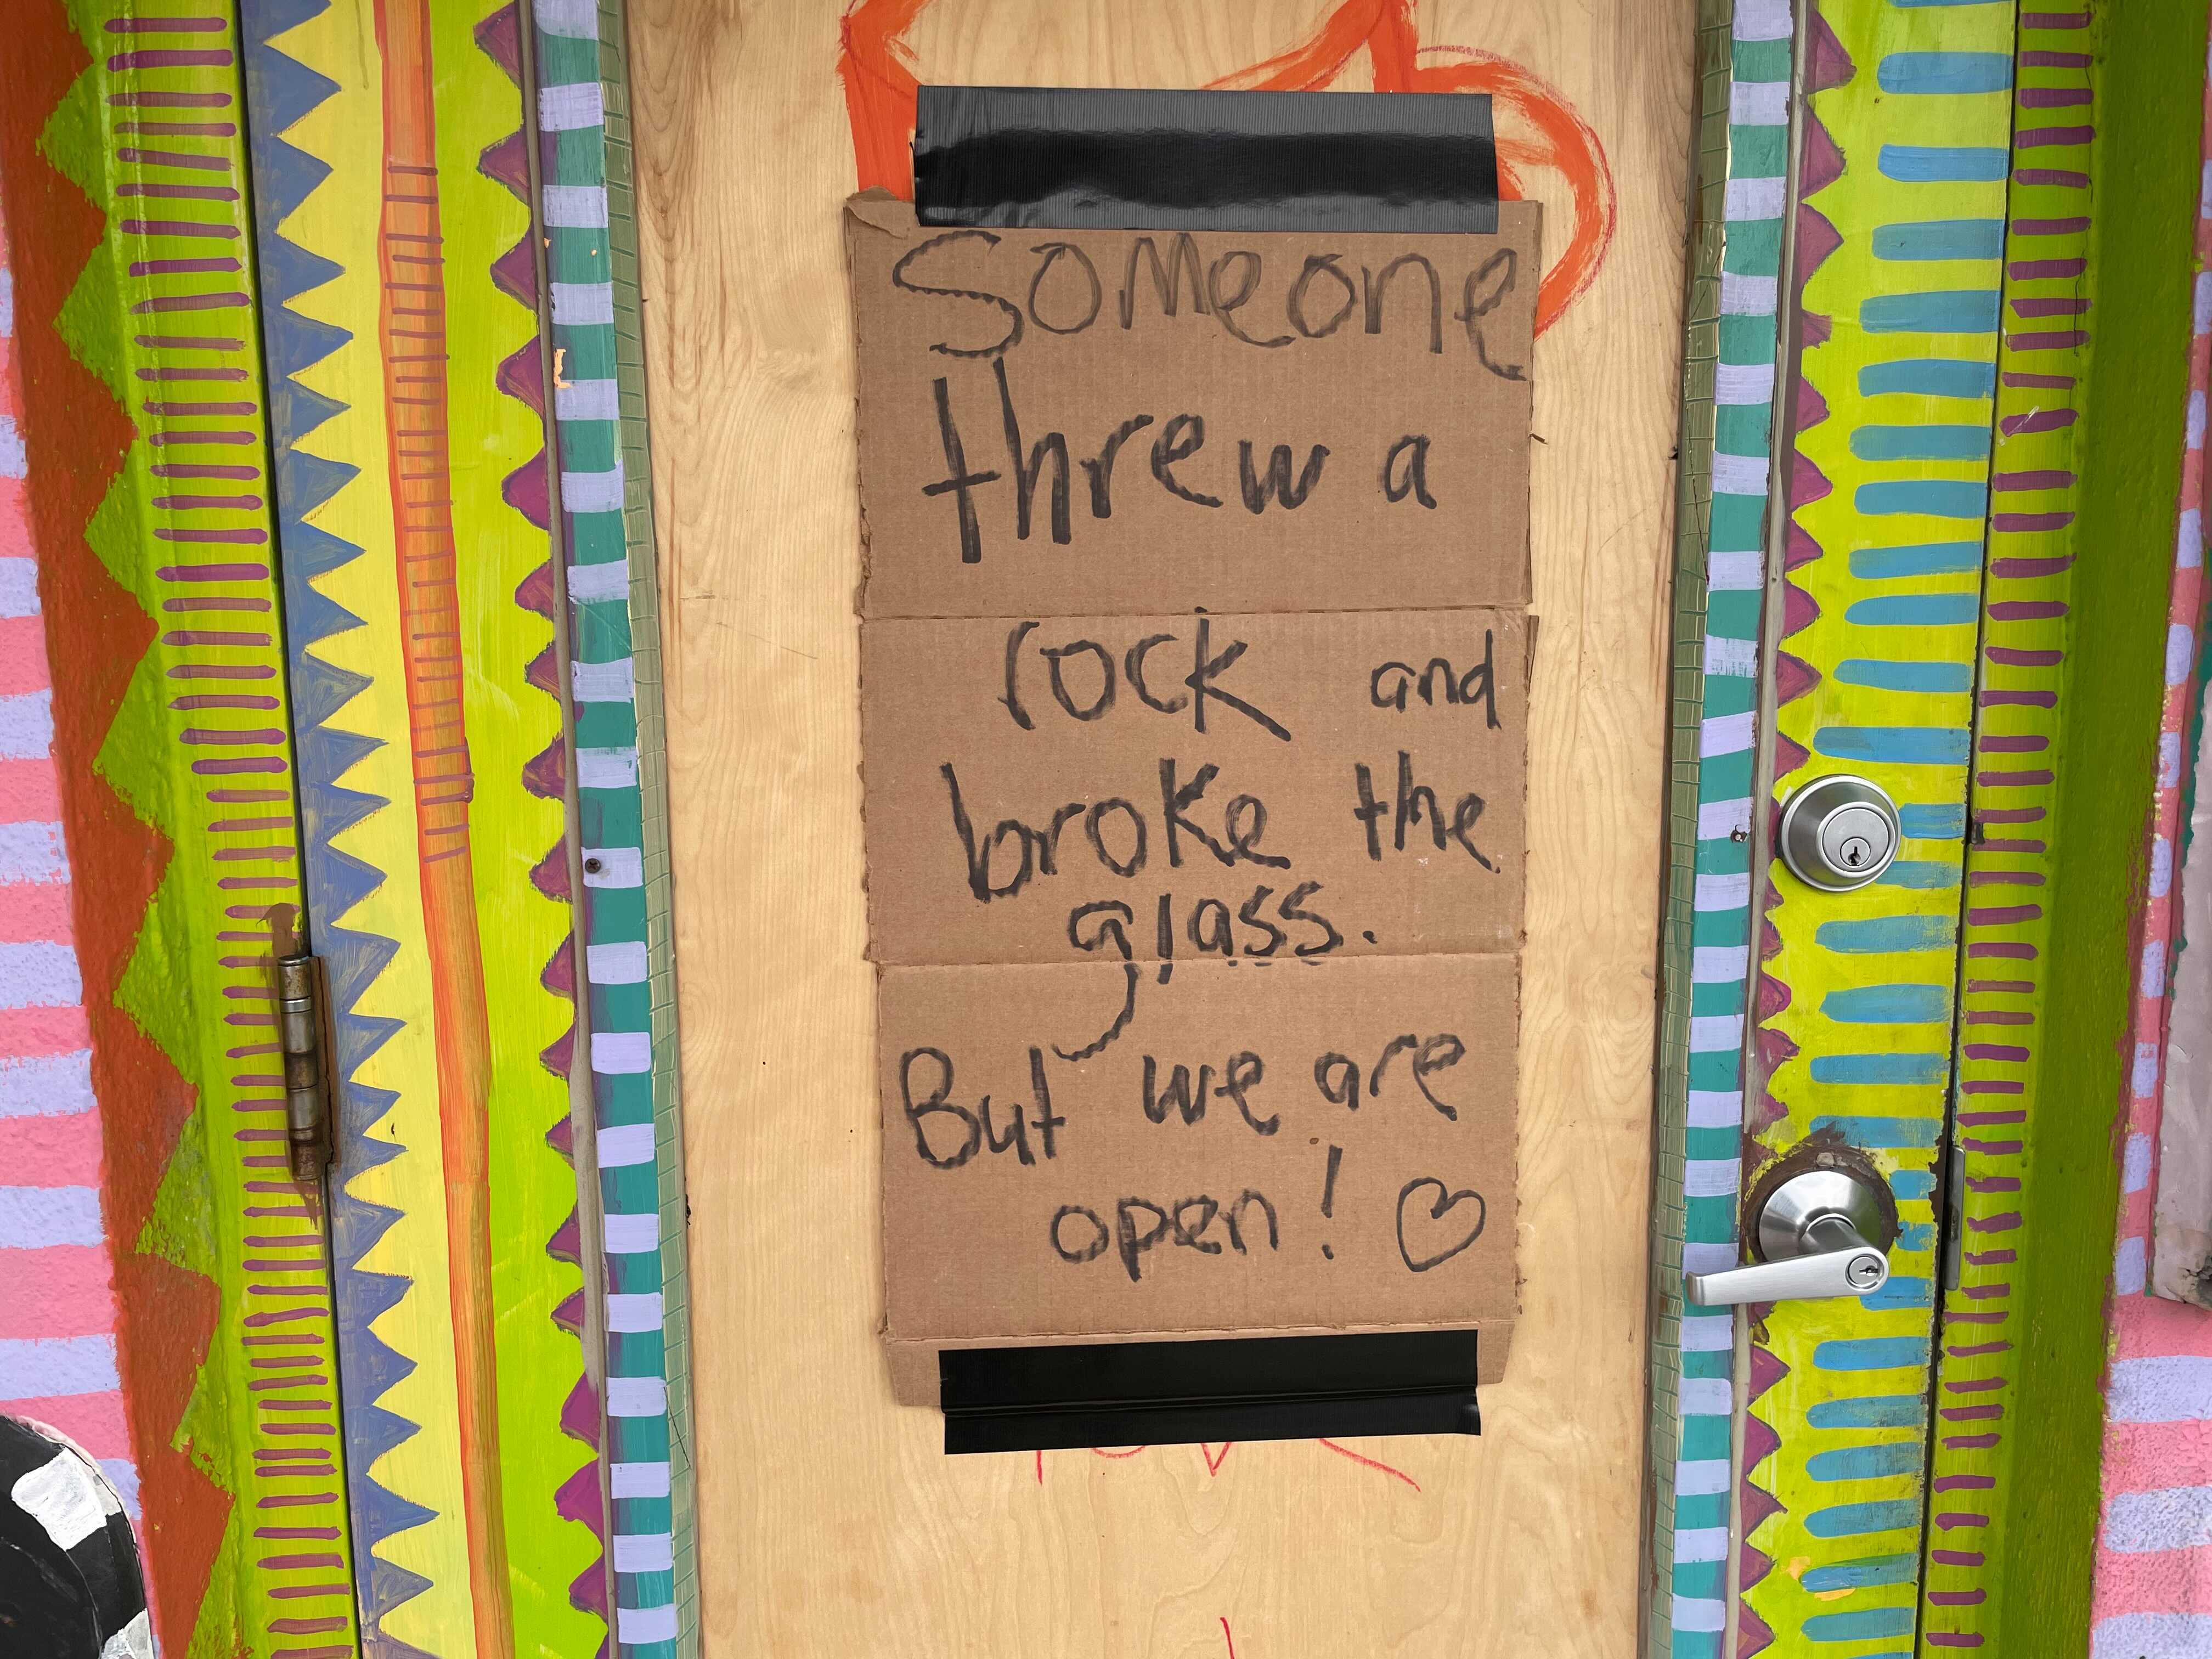 Someone
threw a
rock and
broke the
glass.
But we are
open! ♡